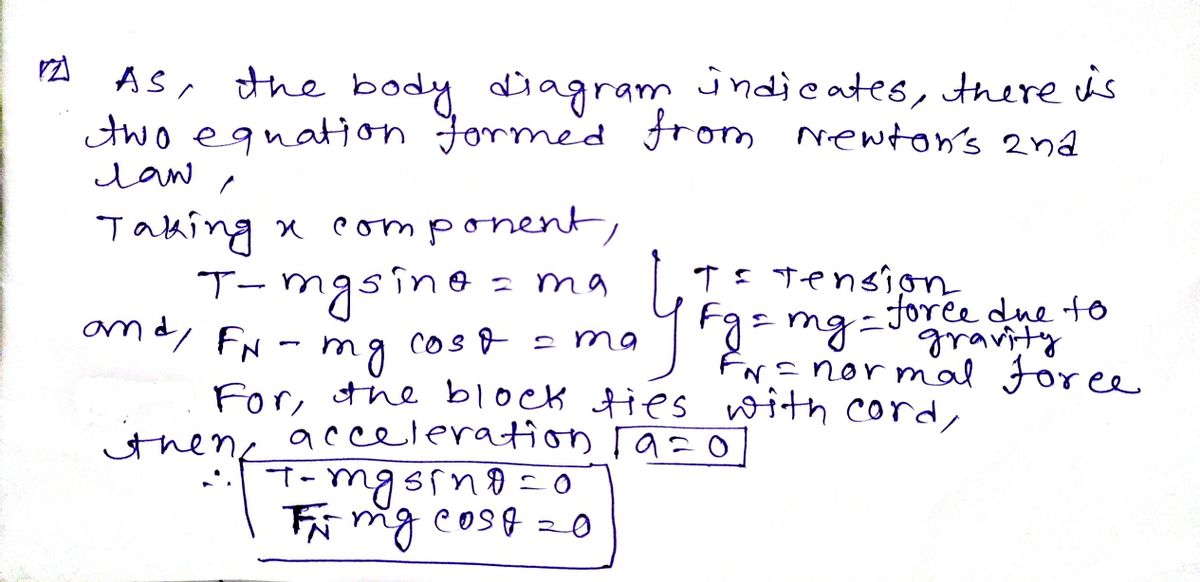 12) As, the body diagram indicates, there is
two equation formed from Newton's 2nd
law,
Taking x component,
T - mg sin θ = ma } T = Tension
and, FN - mg cos θ = ma Fg = mg = force due to gravity
FN = normal force
For, the block ties with cord,
then, acceleration a = 0
∴ T - mg sin θ = 0
FN - mg cos θ = 0